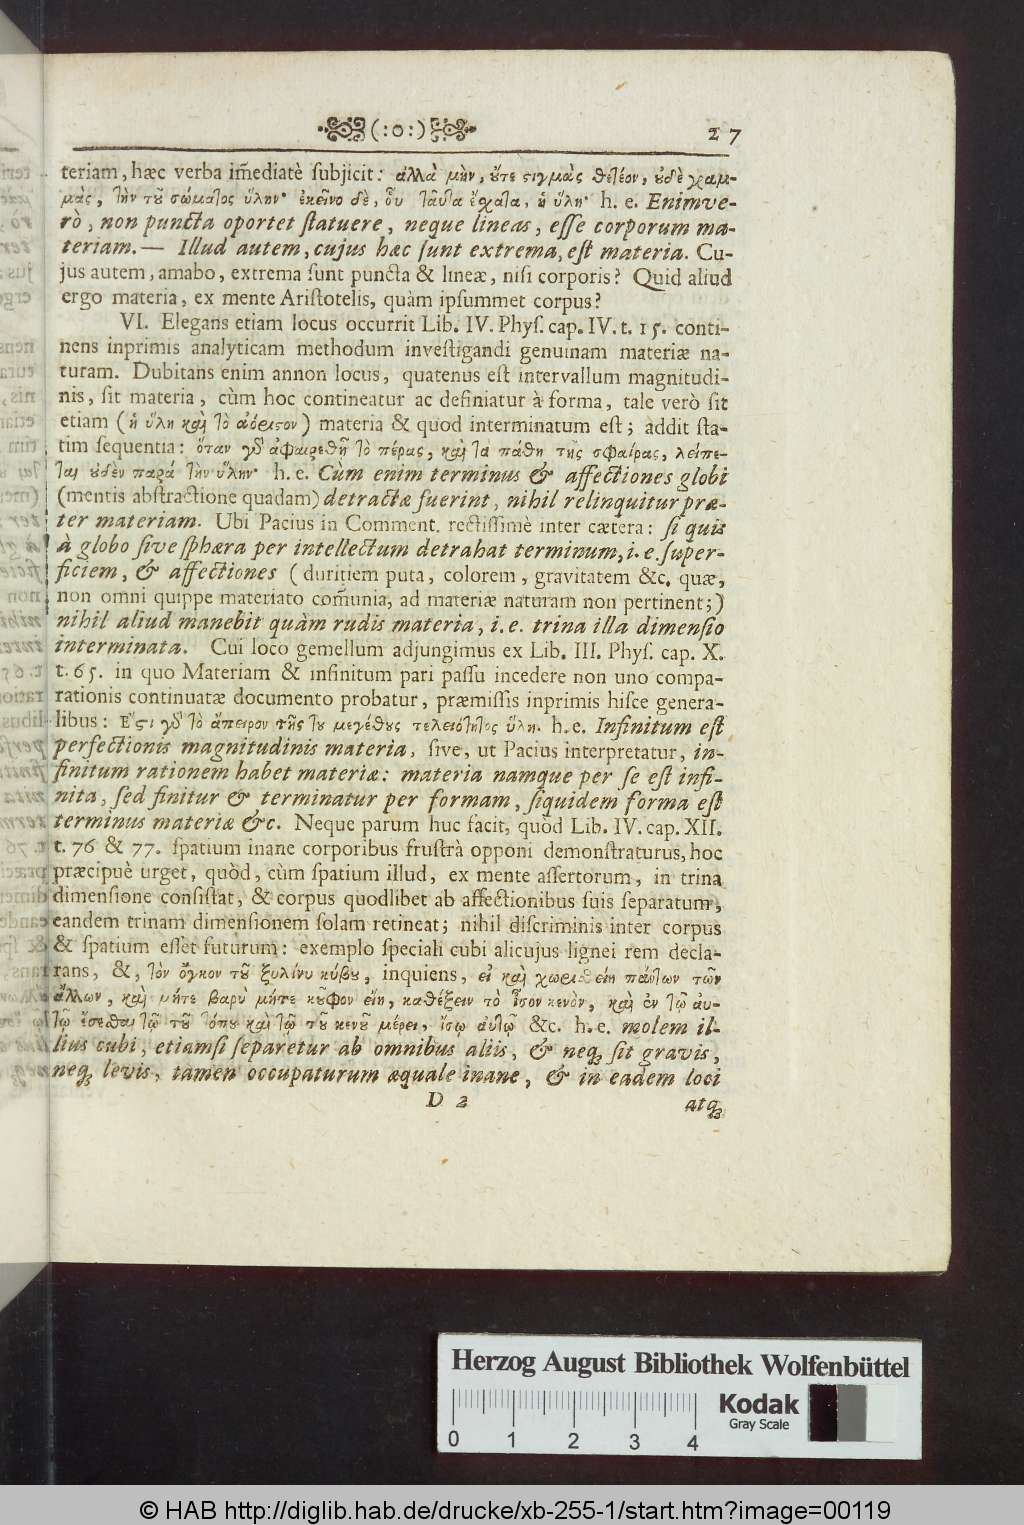 (:o:) 27
teriam, hæc verba im̃ediatè ſubjicit: ἀλλὰ μὴν, ὄτε ςιγμὰς θετέον, ȣδὲ γραμ-
μὰς, τὴν τȣ͂ σώματος ὕλην· ἐκεῖνο δὲ, οὗ ταῦτα ἔσχατα, ἡ ὕλη· h. e. Enimve-
rò, non puncta oportet ſtatuere, neque lineas, eſſe corporum ma-
teriam. — Illud autem, cujus hæc ſunt extrema, eſt materia. Cu-
jus autem, amabo, extrema ſunt puncta & lineæ, niſi corporis? Quid aliud
ergo materia, ex mente Ariſtotelis, quàm ipſummet corpus?
VI. Elegans etiam locus occurrit Lib. IV. Phyſ. cap. IV. t. 15. conti-
nens inprimis analyticam methodum inveſtigandi genuinam materiæ na-
turam. Dubitans enim annon locus, quatenus eſt intervallum magnitudi-
nis, ſit materia, cùm hoc contineatur ac definiatur à forma, tale verò ſit
etiam (ἡ ὕλη καὶ τὸ ἀόριςον) materia & quod interminatum eſt; addit ſta-
tim ſequentia: ὅταν γὃ ἀφαιρεθῇ τὸ πέρας, καὶ τὰ πάθη τῆς σφαίρας, λείπε-
ται ȣδὲν παρὰ τὴν ὕλην· h. e. Cùm enim terminus & affectiones globi
(mentis abſtractione quadam) detractæ fuerint, nihil relinquitur præ-
ter materiam. Ubi Pacius in Comment. rectiſſimè inter cætera: ſi quis
à globo ſive ſphæra per intellectum detrahat terminum, i. e. ſuper-
ficiem, & affectiones (duritiem puta, colorem, gravitatem &c. quæ,
non omni quippe materiato com̃unia, ad materiæ naturam non pertinent;)
nihil aliud manebit quàm rudis materia, i. e. trina illa dimenſio
interminata. Cui loco gemellum adjungimus ex Lib. III. Phyſ. cap. X.
t. 65. in quo Materiam & infinitum pari paſſu incedere non uno compa-
rationis continuatæ documento probatur, præmiſſis inprimis hiſce genera-
libus: Ἔςι γὃ τὸ ἄπειρον τῆς τȣ μεγέθȣς τελειότητος ὕλη. h. e. Infinitum eſt
perfectionis magnitudinis materia, ſive, ut Pacius interpretatur, in-
finitum rationem habet materiæ: materia namque per ſe eſt infi-
nita, ſed finitur & terminatur per formam, ſiquidem forma eſt
terminus materiæ &c. Neque parum huc facit, quòd Lib. IV. cap. XII.
t. 76 & 77. ſpatium inane corporibus fruſtrà opponi demonſtraturus, hoc
præcipuè urget, quòd, cùm ſpatium illud, ex mente aſſertorum, in trina
dimenſione conſiſtat, & corpus quodlibet ab affectionibus ſuis ſeparatum,
eandem trinam dimenſionem ſolam retineat; nihil diſcriminis inter corpus
& ſpatium eſſet futurum: exemplo ſpeciali cubi alicujus lignei rem decla-
rans, &, τὸν ὄγκον τȣ͂ ξυλίνȣ κύβȣ, inquiens, εἰ καὶ χωρισθείη πάντων τῶν
ἄλλων, καὶ μήτε βαρὺ μήτε κȣ͂φον εἴη, καθέξειν τὸ ἶσον κενὸν, καὶ ἐν τῷ αυ-
τῷ ἔσεθαι τῷ τȣ͂ τόπȣ καὶ τῷ τȣ͂ κενȣ͂ μέρει, ἴσῳ αὐτῷ &c. h. e. molem il-
lius cubi, etiamſi ſeparetur ab omnibus aliis, & neq; ſit gravis,
neq; levis, tamen occupaturum æquale inane, & in eadem loci
D 2 atq;
Herzog August Bibliothek Wolfenbüttel
0 1 2 3 4
Kodak
Gray Scale
© HAB http://diglib.hab.de/drucke/xb-255-1/start.htm?image=00119